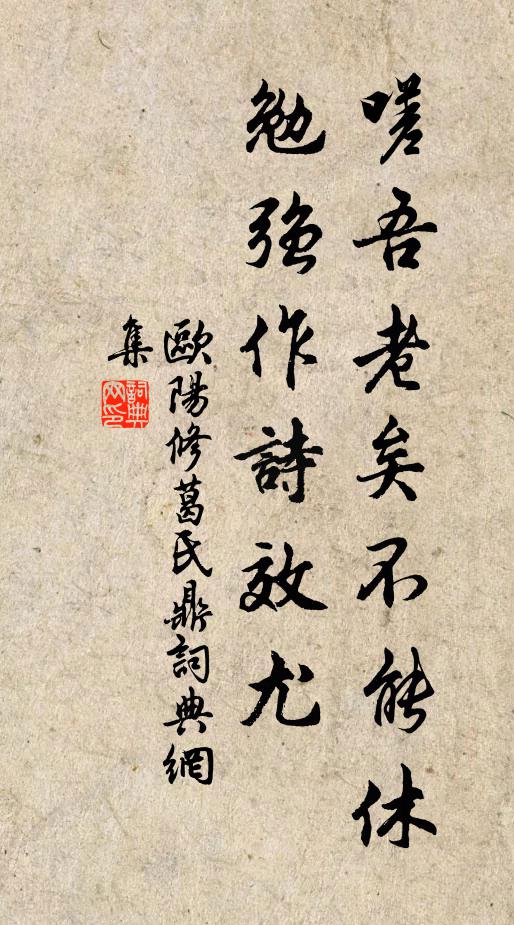 嗟吾老矣不能休
勉強作詩效尤
歐陽修葛氏鼎詞典網
集
詞典
网印